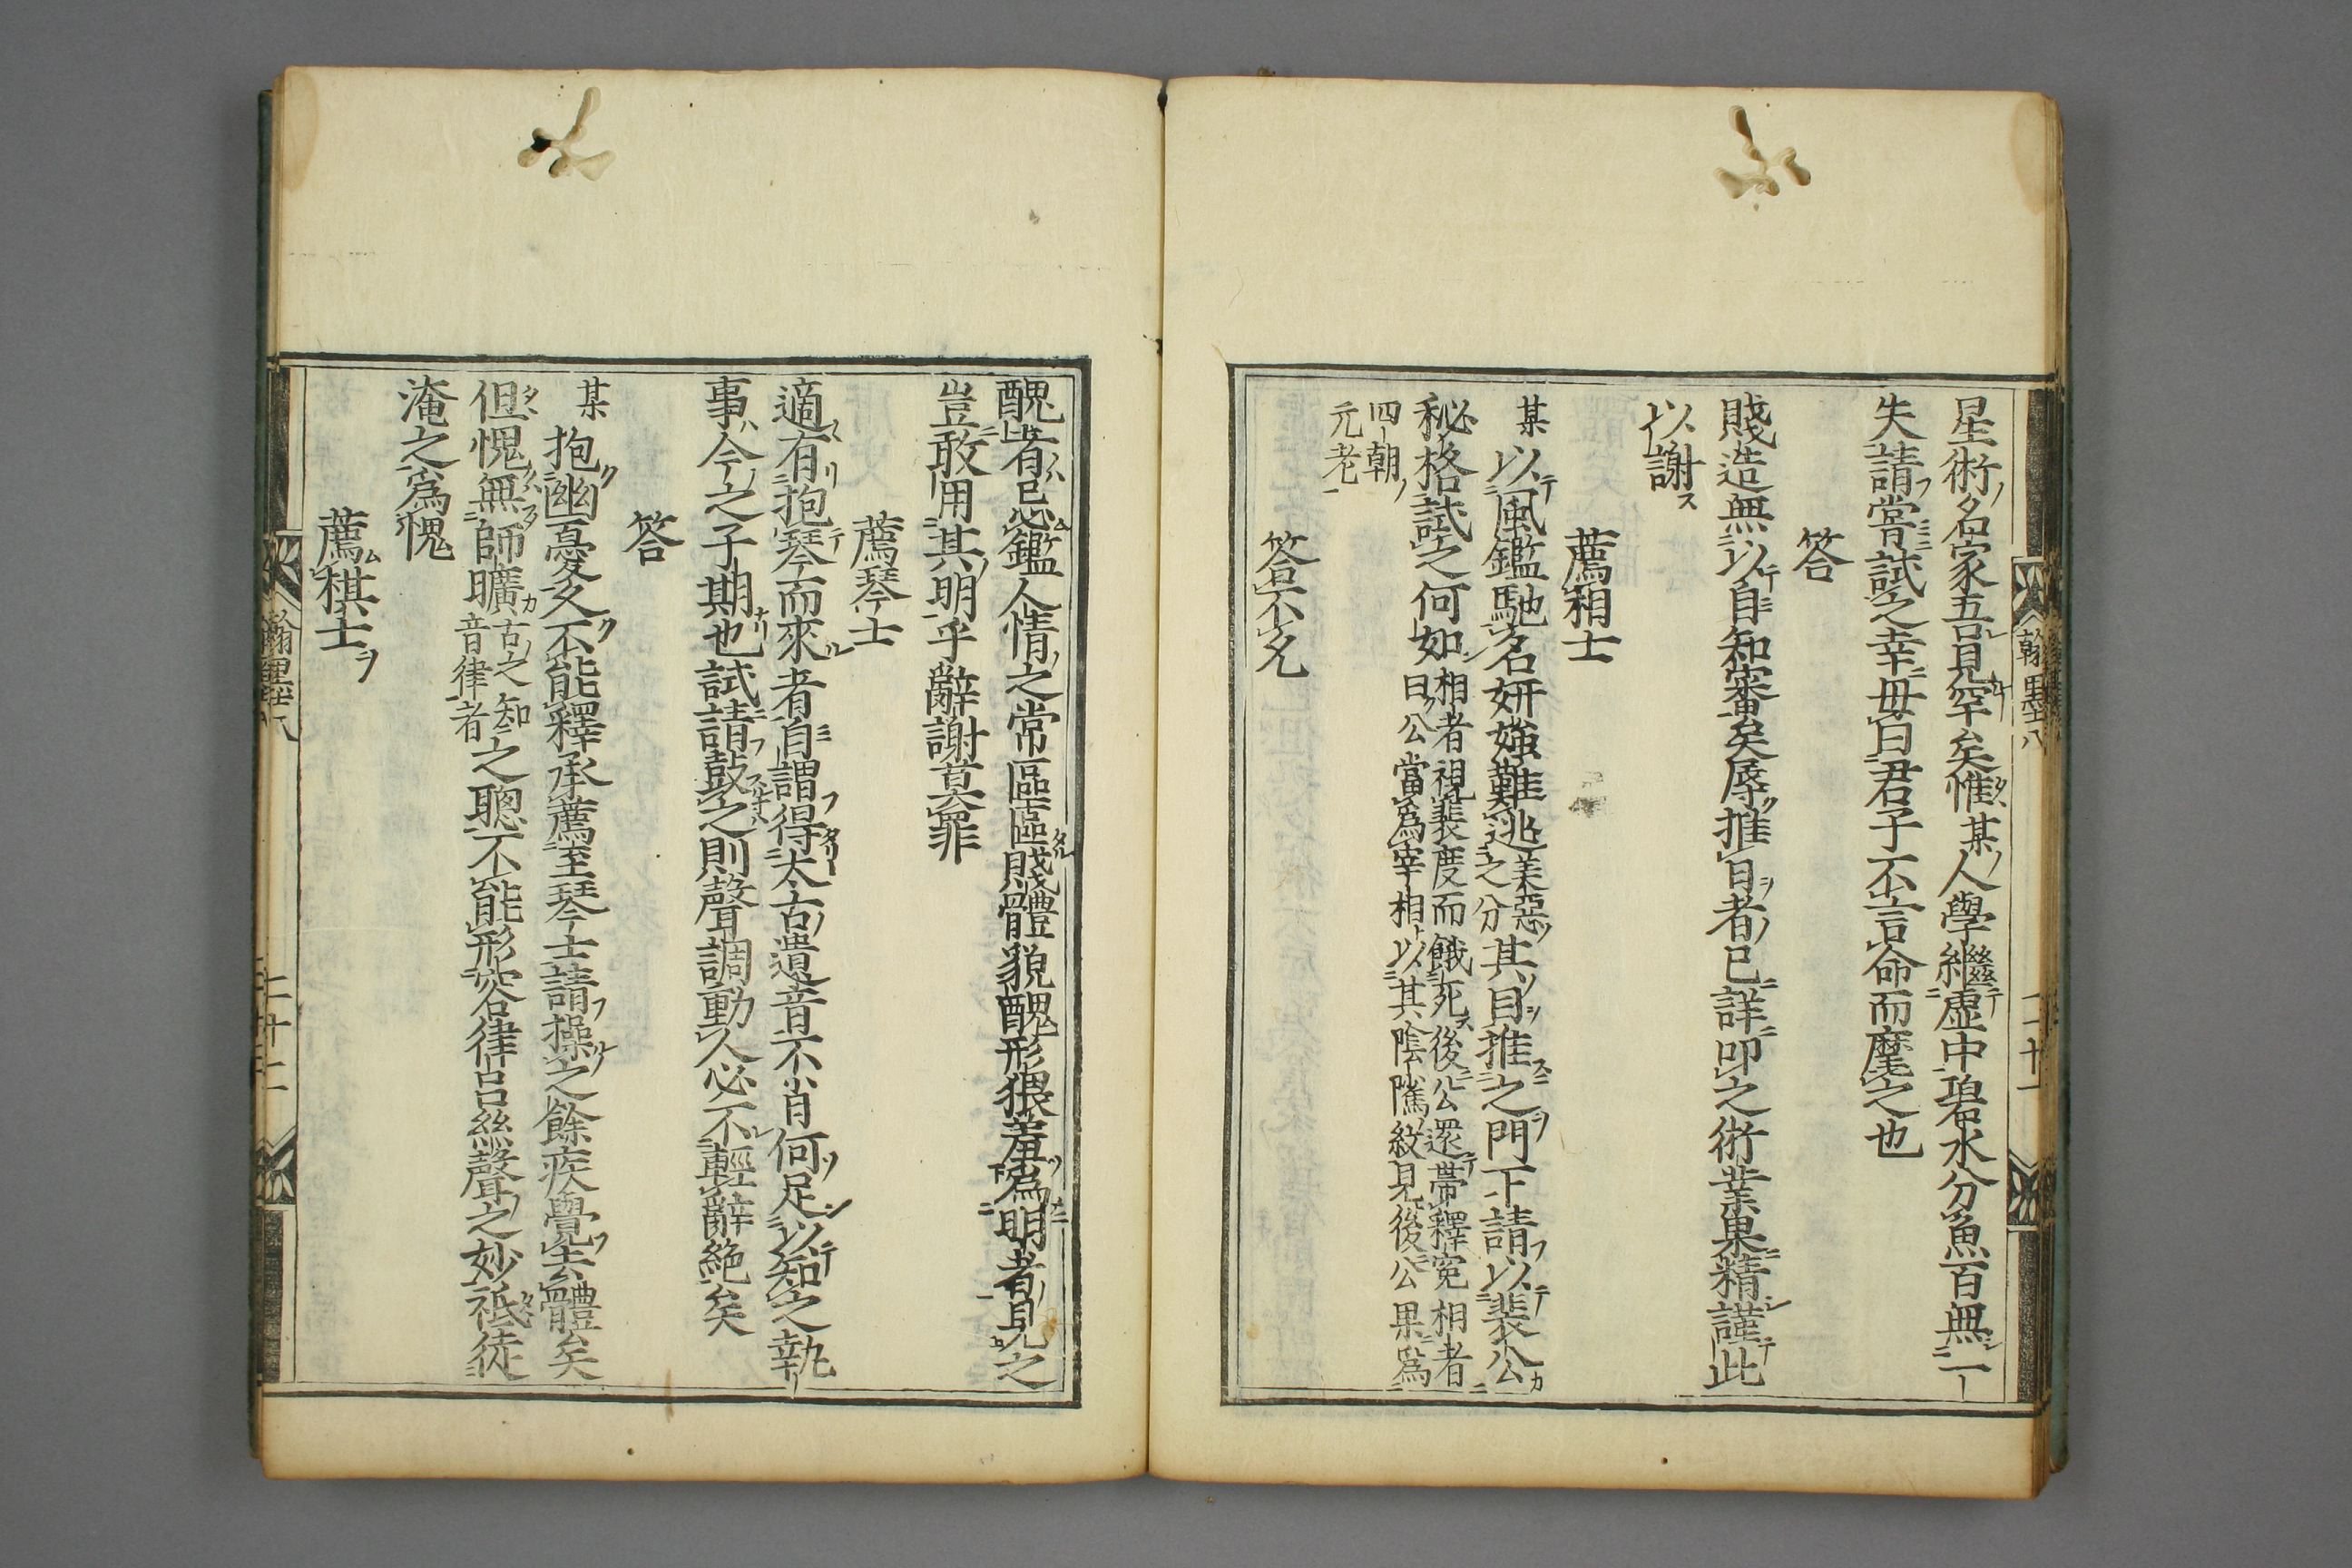 星術名家吾見罕矣惟某人學繼虚中碧水分魚百無一
失請嘗試之幸毋曰君子不言命而麾之也
答
賤造無以自知審矣辱推日者已詳叩之術業果精謹此
以謝
薦相士
某以風鑑馳名妍媸難逃美惡之分其目推之門下請以裴公
秘格試之何如相者視裴度而餓死後公還帶釋寃相者
曰公當爲宰相以其陰隲紋見後公果爲
四朝
元老
答不允
翰墨八
二十一
醜者忌鑑人情之常區區賤體貌醜形猥羞爲明者見之
豈敢用其明乎辭謝莫罪
薦琴士
適有抱琴而來者自謂得太古遺音不肖何足以知之執
事今之子期也試請鼓之則聲調動人必不輕辭絶矣
答
某抱幽憂久不能釋承薦至琴士請操之餘疾覺去體矣
但愧無師曠古之知音律者之聰不能形容律呂絲聲之妙祗徒
淹之爲愧
薦棋士
翰墨八
二十二